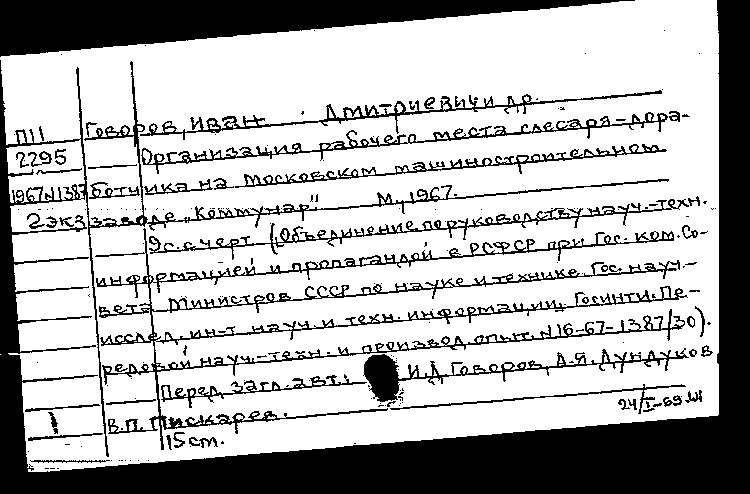 П11 Говоров, Иван Дмитриевич и др.
2295 Организация рабочего места слесаря-дора-
1967 N1387 ботчика на Московском машиностроительном
2 экз заводе „Коммунар" М., 1967.
9 с. с черт. (Объединение по руководству науч.-техн.
информацией и пропагандой в РСФСР при Гос. ком. Со-
вета Министров СССР по науке и технике. Гос. науч.-
исслед. ин-т науч. и техн. информации, Госинти. Пе-
редовой науч.-техн. и производ. опыт. N 16-67-1387/30).
Перед загл. авт.: И.Д. Говоров, А.Я. Дундуков
В.П. Пискарев.
15 cm.
24/I-69